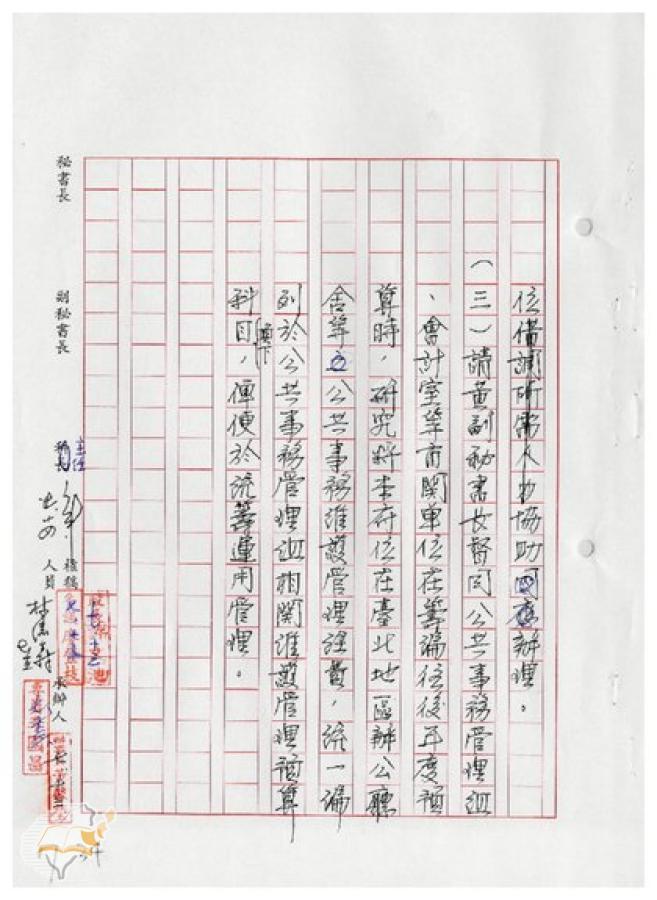 位借調所需人力協助因應辦理。
（三）請黃副秘書長督同公共事務管理組
、會計室等有關單位在籌編往後年度預
算時，研究將本府位在臺北地區辦公廳
舍等公共事務維護管理經費，統一編
列於公共事務管理組相關維護管理預算
科目項下，俾便於統籌運用管理。
秘書長
副秘書長
主任
秘長
核稿人員
承辦人